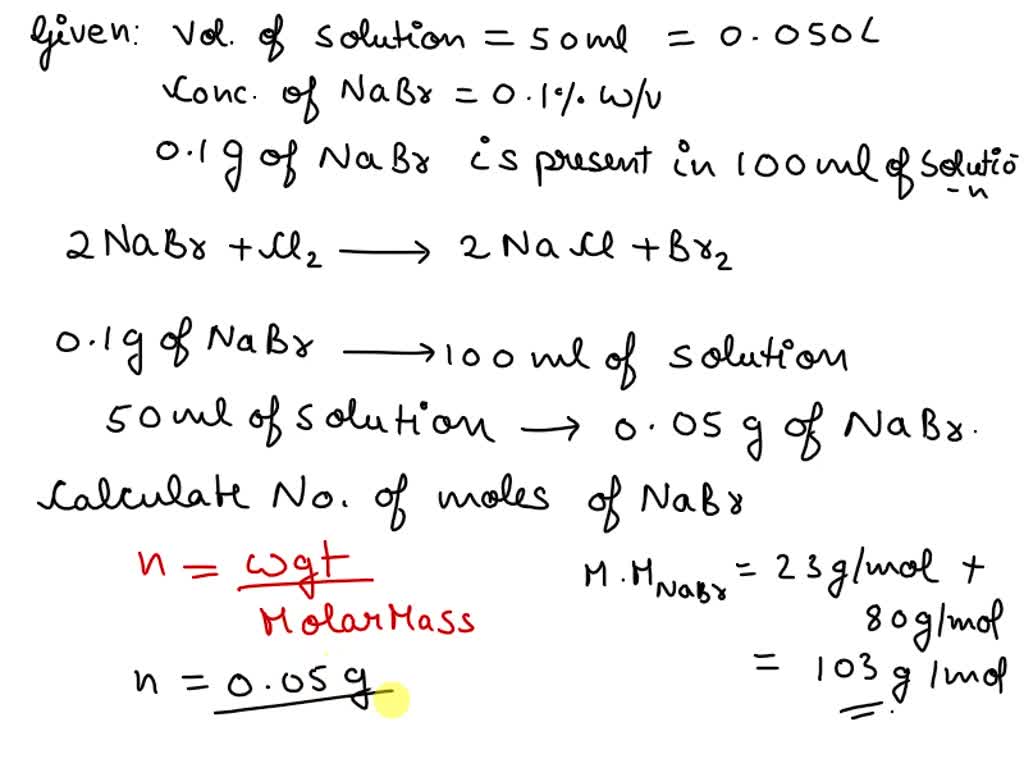 Given: Vol. of solution = 50ml = 0.050L
Conc. of NaBr = 0.1% w/v
0.1g of NaBr is present in 100ml of solutio
-n
2NaBr + Cl2 → 2NaCl + Br2
0.1g of NaBr → 100 ml of solution
50ml of solution → 0.05 g of NaBr.
Calculate No. of moles of NaBr
n = wgt / MolarMass
M.M NaBr = 23g/mol + 80g/mol
= 103 g/mol
n = 0.05g